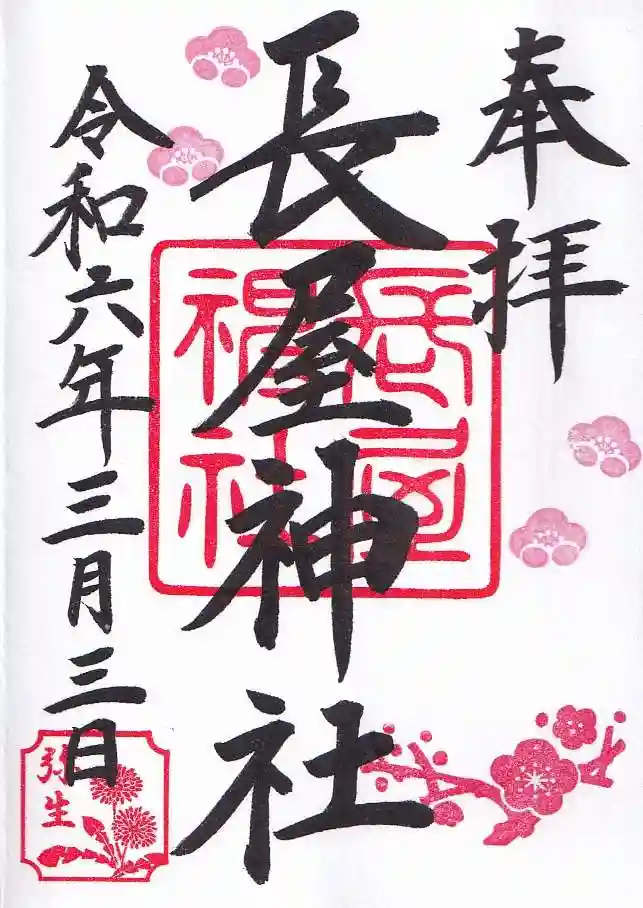 奉拝
長屋神社
長屋神社
令和六年三月三日
弥生